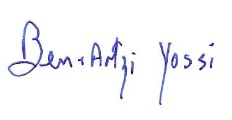 Ben-Artzi Yossi